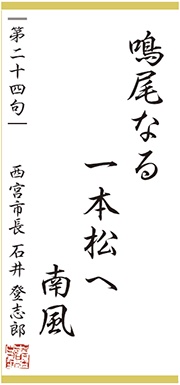 鳴尾なる
一本松へ
南風
第二十四句
西宮市長 石井 登志郎